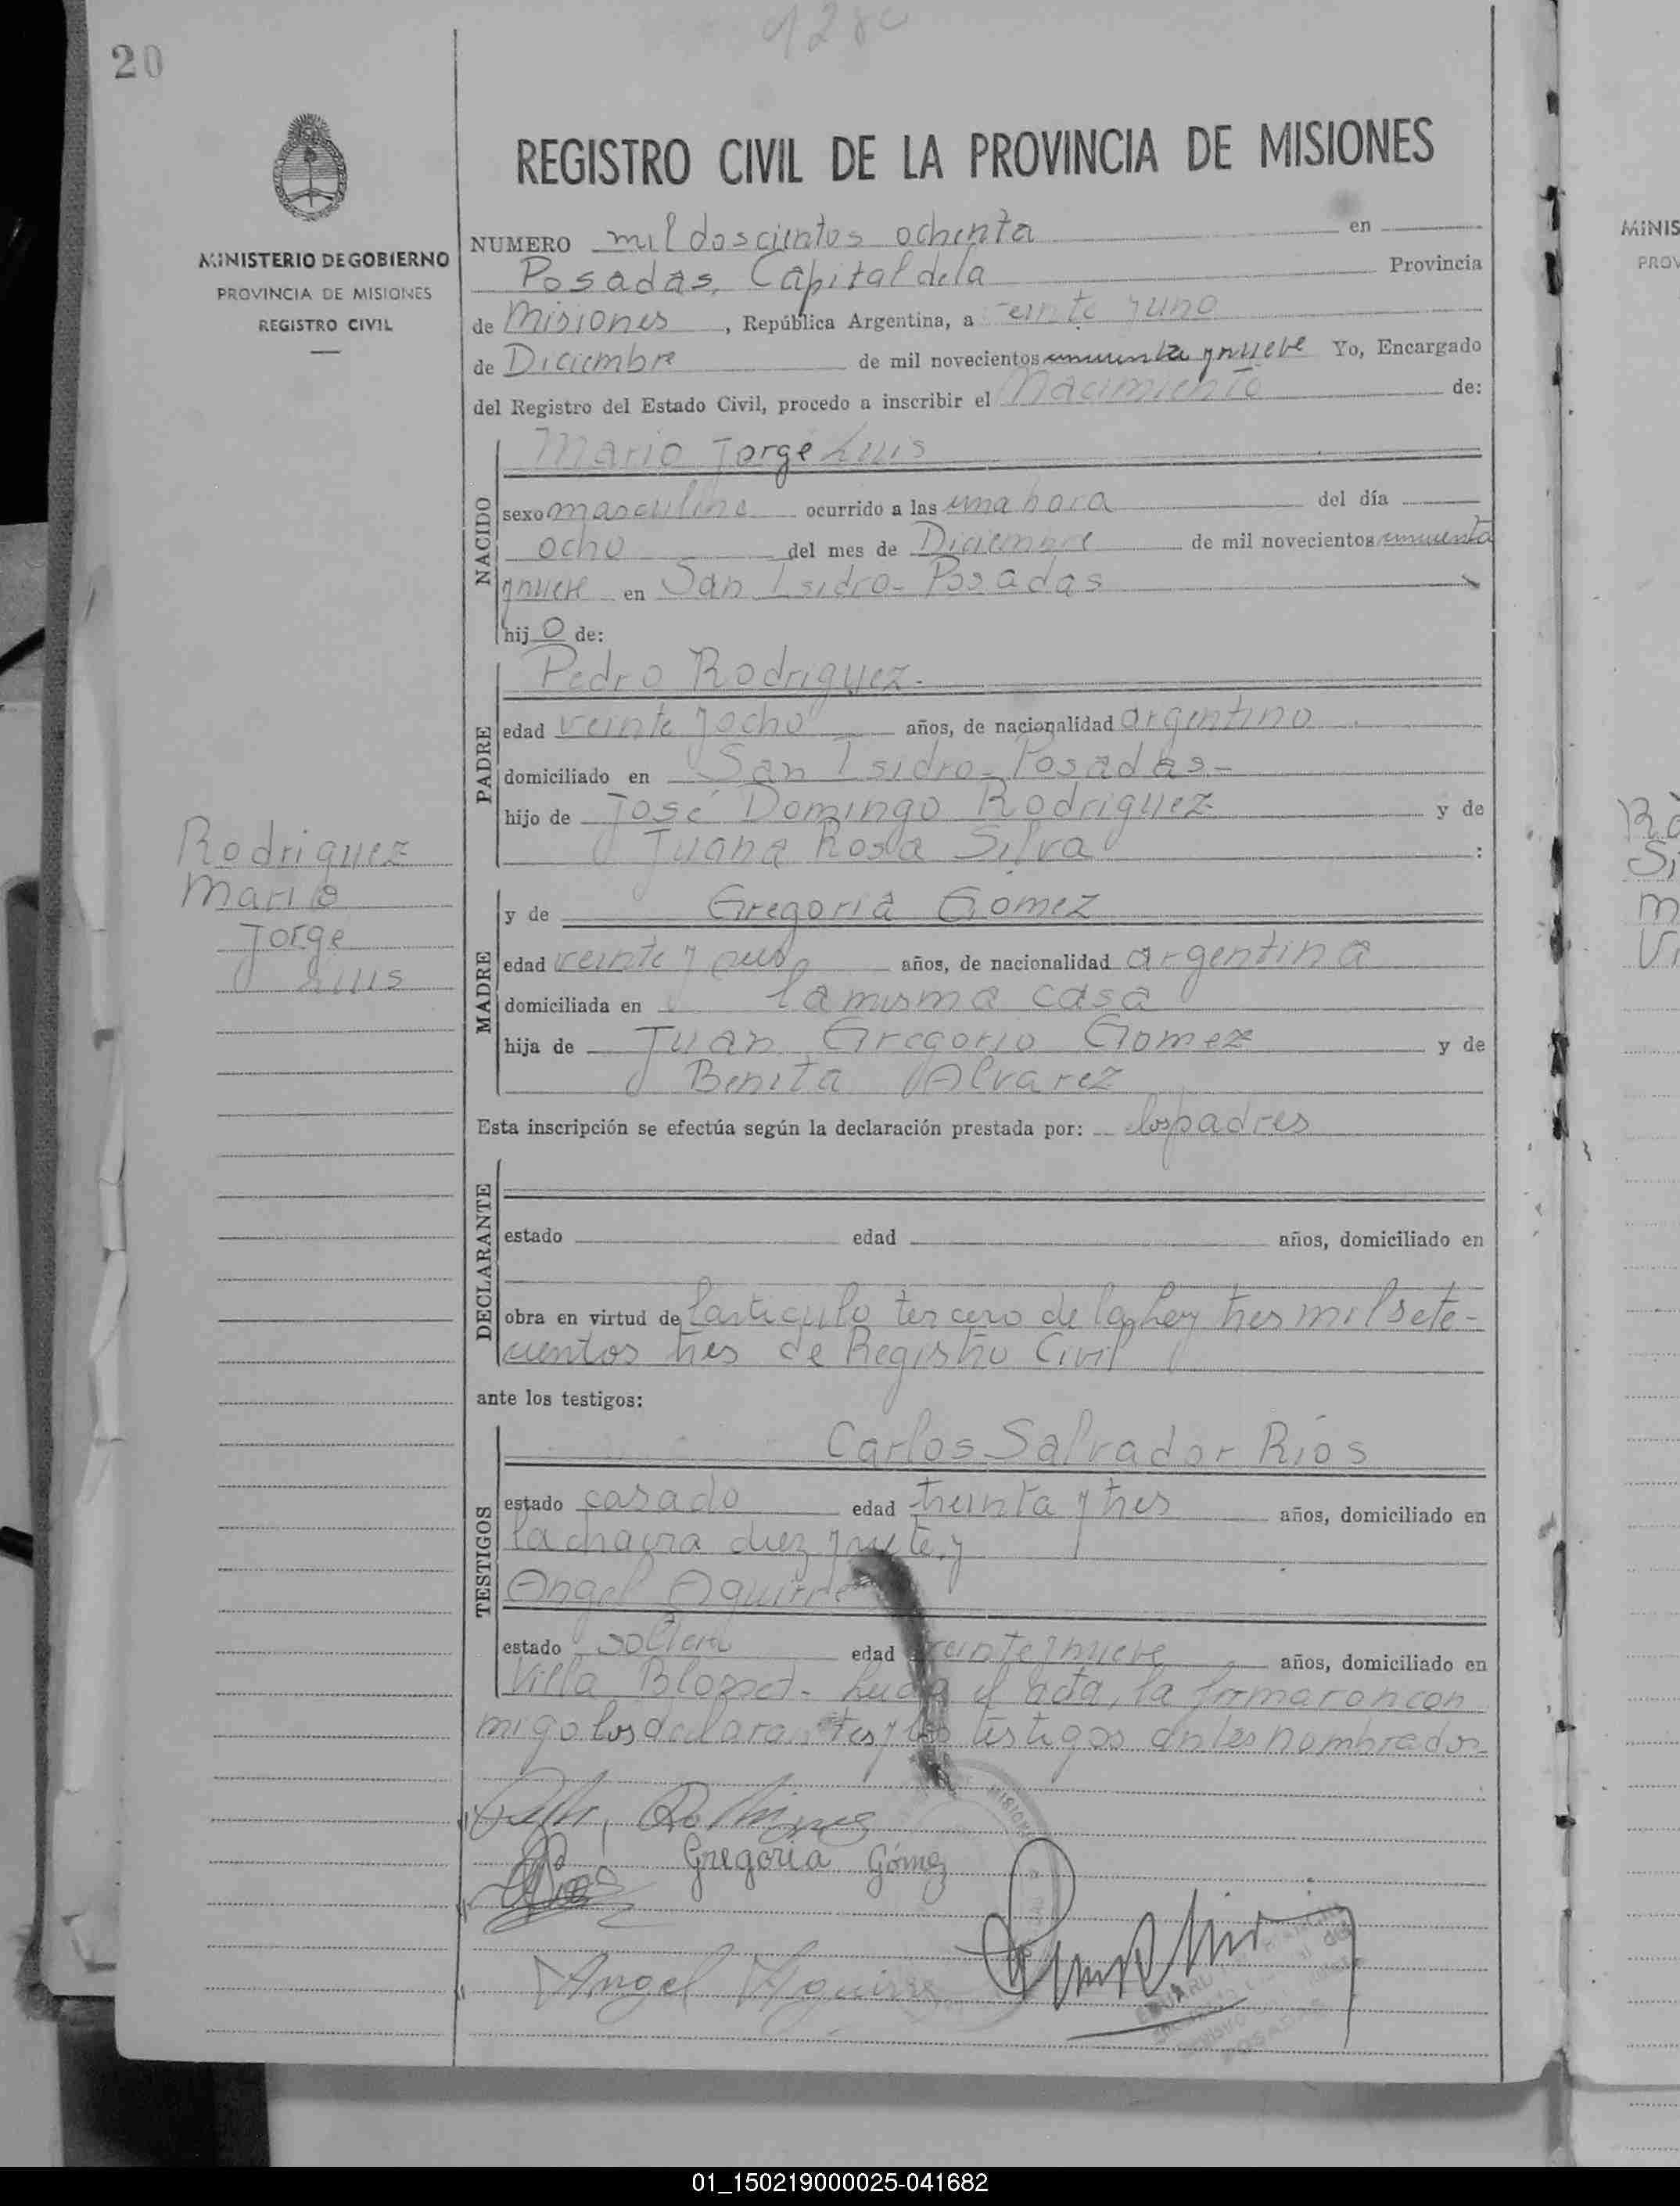 1280
20
REGISTRO CIVIL DE LA PROVINCIA DE MISIONES
MINISTERIO DE GOBIERNO
PROVINCIA DE MISIONES
REGISTRO CIVIL
NUMERO mil doscientos ochenta en
Posadas, Capital de la Provincia
de Misiones, República Argentina, a veinte y uno
de Diciembre de mil novecientos cincuenta y nueve Yo, Encargado
del Registro del Estado Civil, procedo a inscribir el Nacimiento de:
NACIDO
Mario Jorge Luis
sexo masculino ocurrido a las una hora del día
ocho del mes de Diciembre de mil novecientos cincuenta
y nueve en San Isidro - Posadas
hijo de:
PADRE
Pedro Rodriguez.
edad veinte y ocho años, de nacionalidad argentino
domiciliado en San Isidro - Posadas -
hijo de José Domingo Rodriguez y de
Juana Rosa Silva :
Rodriguez
Mario
Jorge
Luis
MADRE
y de Gregoria Gomez
edad veinte y años, de nacionalidad argentina
domiciliada en la misma casa
hija de Juan Gregorio Gomez y de
Benita Alvarez
Esta inscripción se efectúa según la declaración prestada por: los padres
DECLARANTE
estado edad años, domiciliado en
obra en virtud de l'articulo tercero de la Ley tres mil sete-
cientos tres de Registro Civil
ante los testigos:
TESTIGOS
Carlos Salvador Ríos
estado casado edad treinta y tres años, domiciliado en
la chacra diez y siete, y
Angel Aguirre
estado soltero edad veinte y nueve años, domiciliado en
Villa Blosset - Leida el acta, la firmaron con
migo los declarantes y los testigos antes nombrados -
Gregoria Gómez
Angel Aguirre
MISIONES
POSADAS
MINIS
PROV
01_150219000025-041682